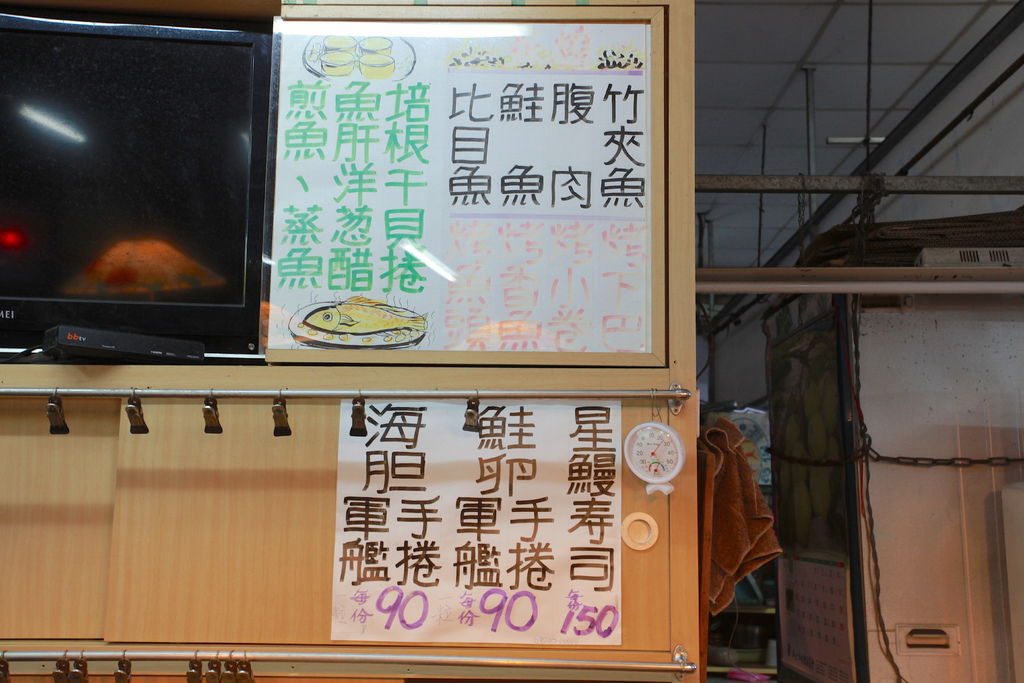 竹夾魚
腹肉
鮭魚
比目魚
烤下巴
烤小卷
烤香魚
烤魚頭
培根干貝捲
魚肝洋葱醋
煎魚、蒸魚
bbtv
星鰻寿司
每份150
鮭卵
手捲
軍艦
每份90
海胆
手捲
軍艦
每份90